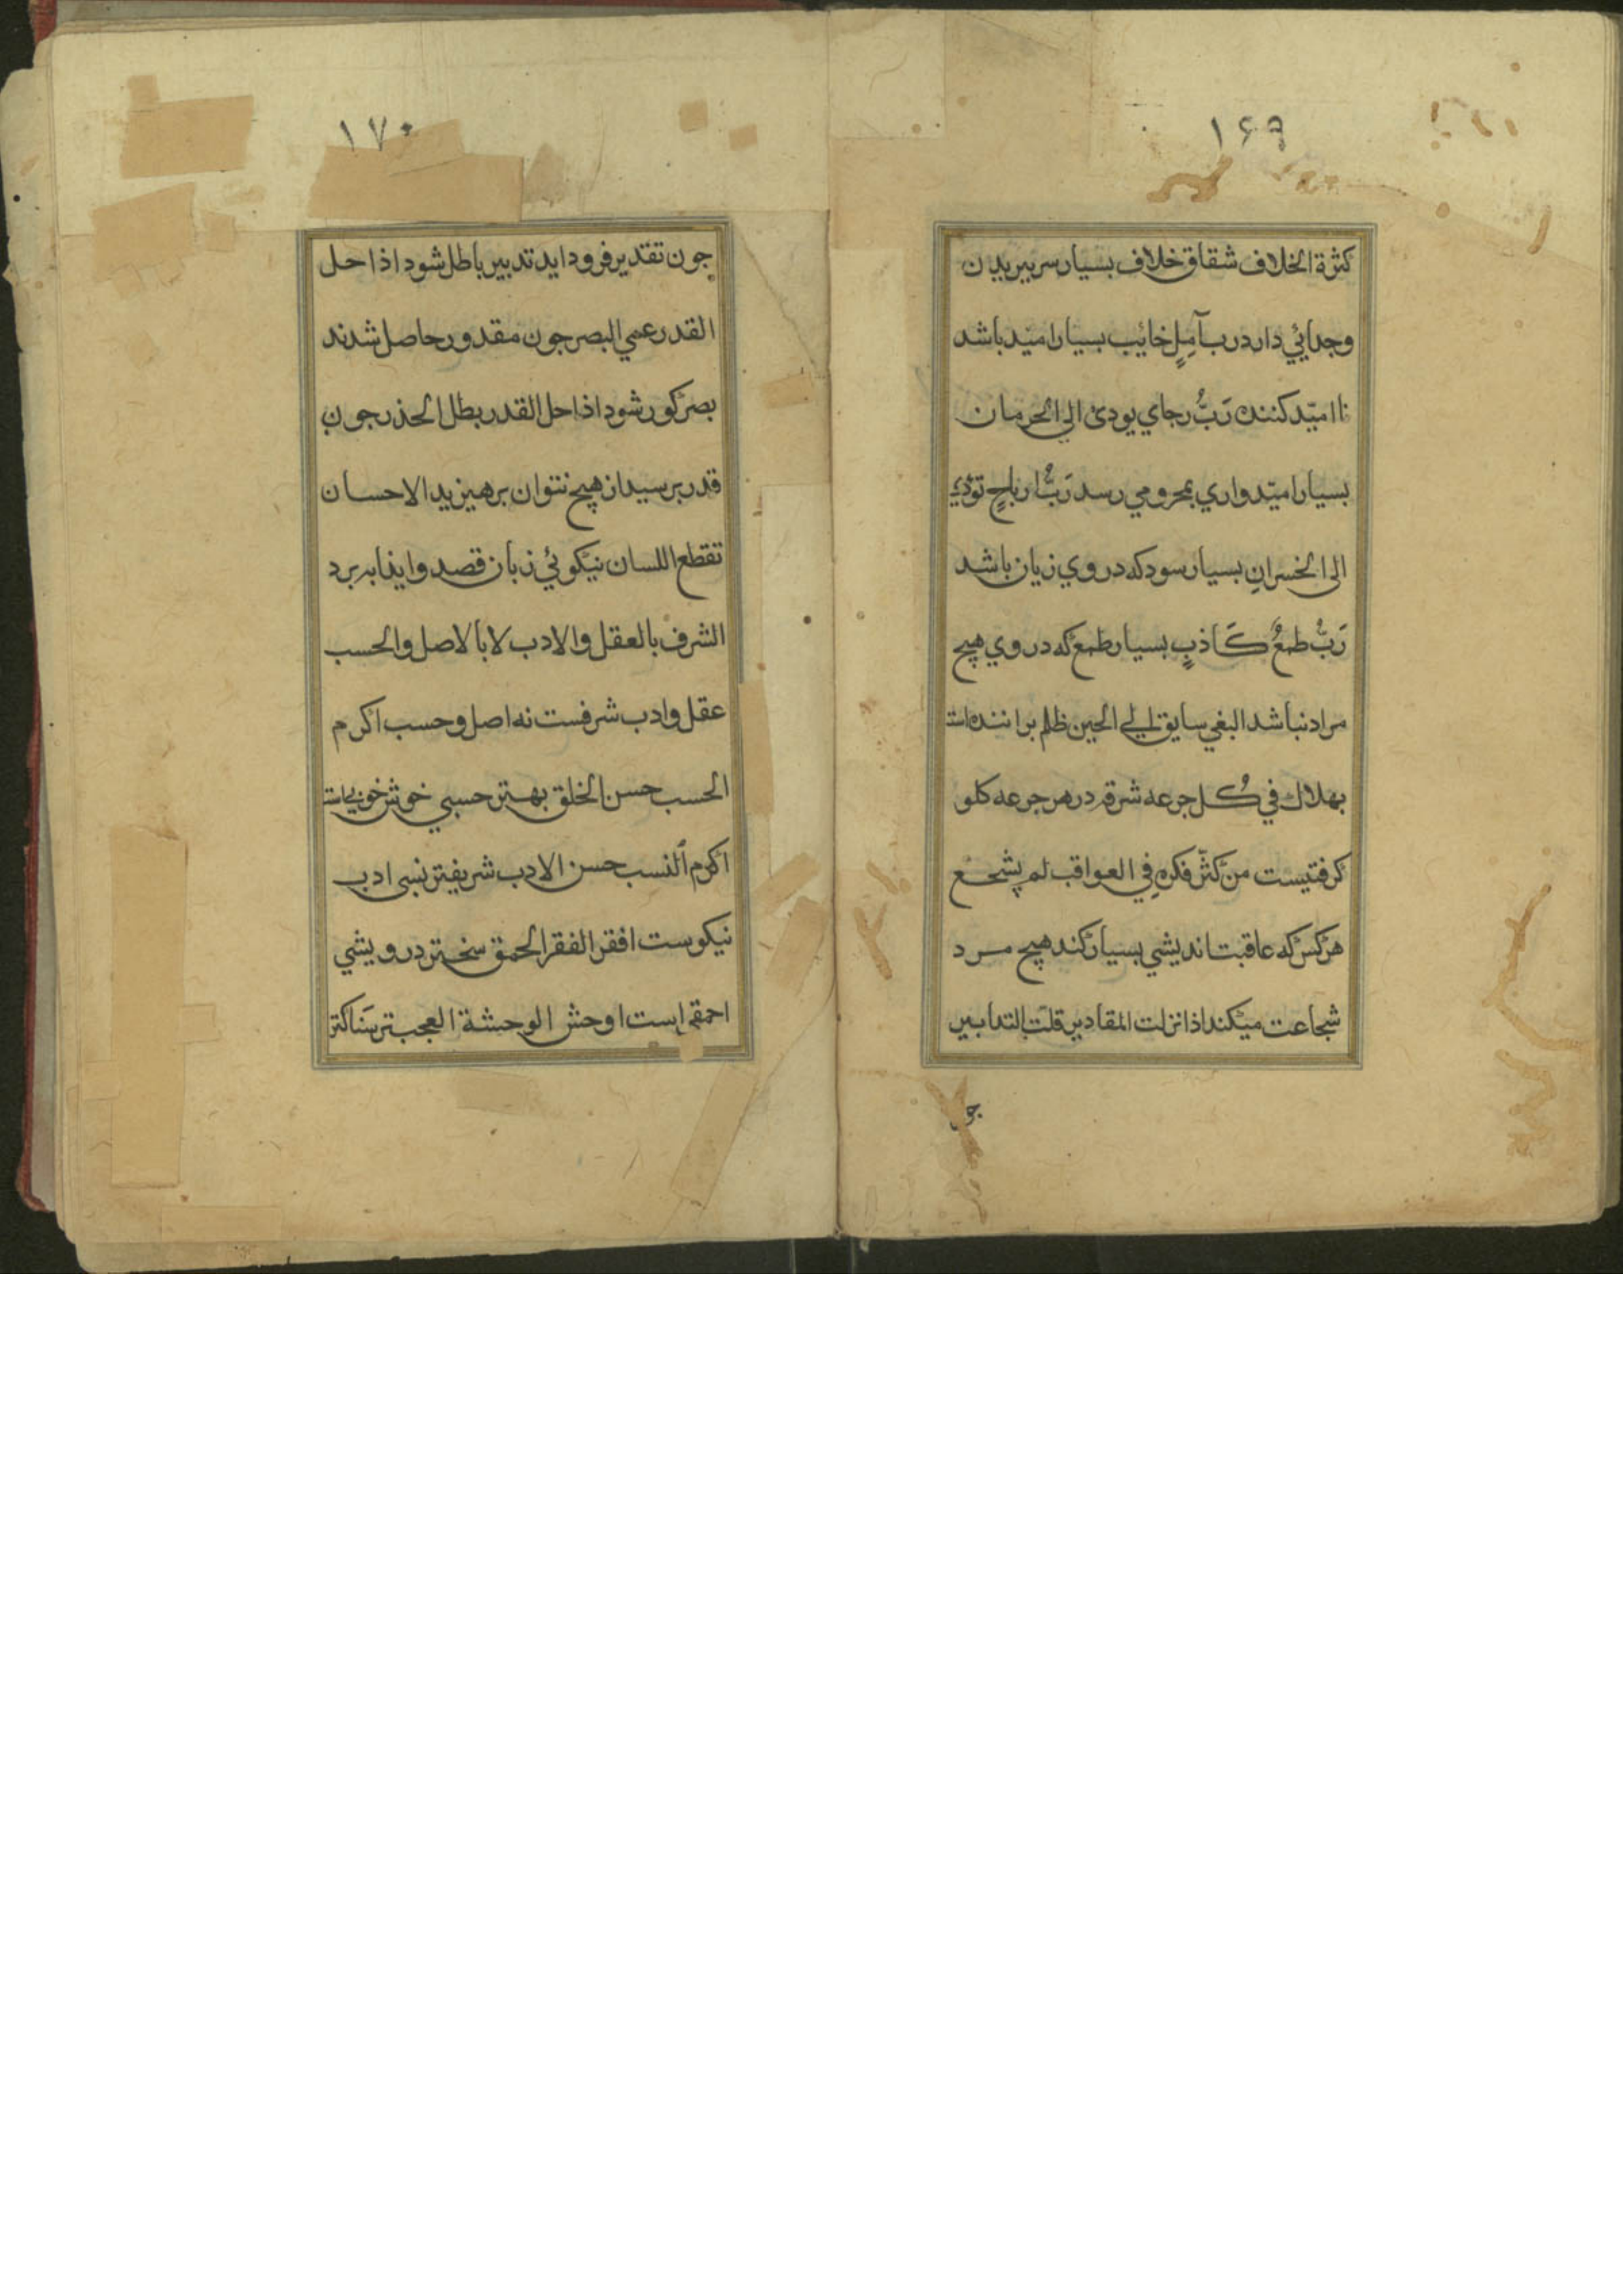 ١٦٩
كثرة الخلاف شقاق خلاف بسيار سر بيريدن
وجدائي دارد رب آملٍ خائيب بسيار اميد باشد
نااميّد كننده رَبُّ رجاي يودى الى الحرمان
بسيار اميّدواري بمحرومي رسد رَبُّ ارباحٍ تؤدي
الى الخسرانِ بسيار سود كه در وي زيان باشد
رَبُّ طمعٌ كَاذبٍ بسيار طمع كه در وي هيچ
مراد نباشد البغي سايق الي الحين ظلم براننده است
بهلاك في كُل جرعه شرقه در هر جرعه كلو
كرفتيست من كثّر فكرهِ في العواقب لم يشجع
هركس كه عاقبت انديشي بسيار كند هيچ مرد
شجاعت ميكند اذا نزلت المقادير قلَت التدابير
جون
١٧٠
جون تقدير فرود ايد تدبير باطل شود اذا حل
القدر عمي البصر جون مقدور حاصل شدند
بصر كور شود اذا حل القدر بطل الحذر جون
قدر برسيد از هيچ نتوان برهيزيد الاحسان
تقطع اللسان نيكوئي زبان قصد و ايذا ببرد
الشرف بالعقل والادب لا بالاصل والحسب
عقل وادب شرفست نه اصل وحسب اكرم
الحسب حسن الخلق بهتر حسبي خوش خويي است
اكرم النسب حسن الادب شريفتر نسبى ادب
نيكوست افقر الفقر الحمق سختر درويشي
احمقي است اوحش الوحشة العجب ترسناكتر